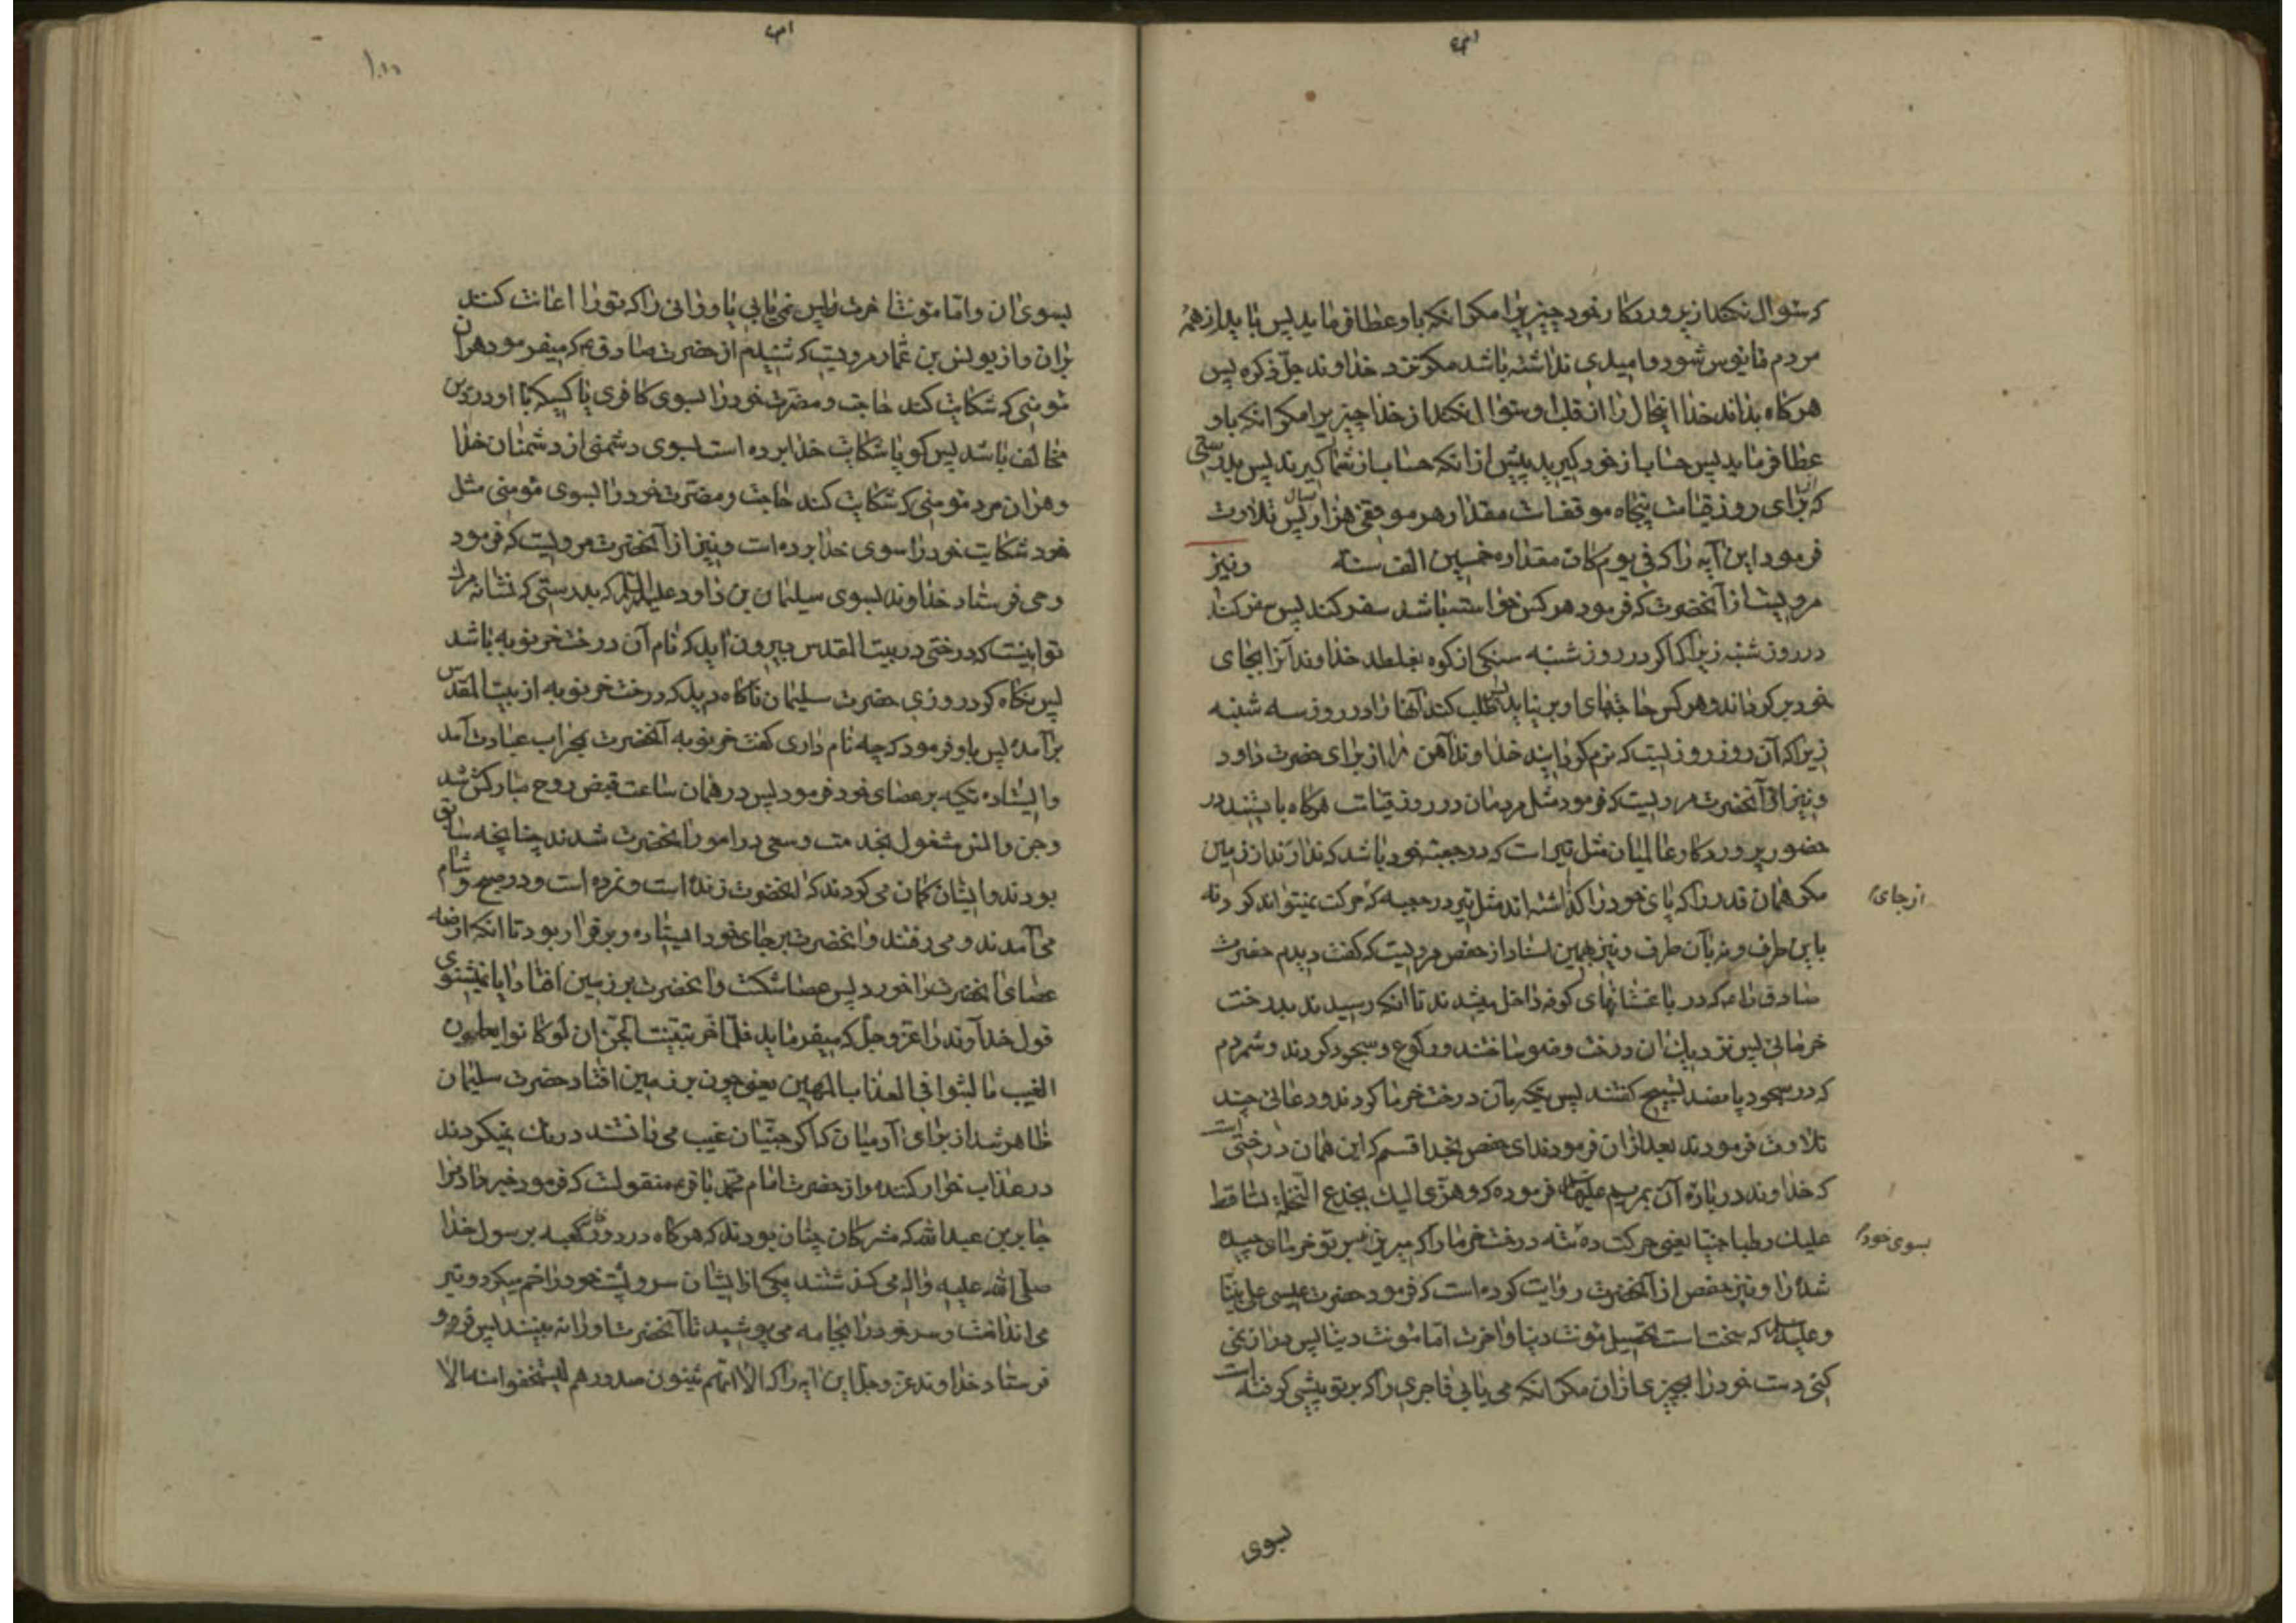 که سئوال نکند از پروردکار خود چیزیرا مکر انکه باو عطا فرماید پس باید از همهٔ
مردم مایوس شود و امیدی نداشته باشد مکر نزد خداوند جلّ ذکره پس
هرکاه بداند خدا اینحال را از قلب او سئوال نکند از خدا چیزیرا مکر انکه باو
عطا فرماید پس حساب از خود کیرید پیش از انکه حساب از شما کیرند پس بدرستی
که برای روز قیامت پنجاه موقف است مقدار هر موقفی هزار سال پس تلاوت
فرمود این آیه را که فی یوم کان مقداره خمسین الف سنة ونیز
مرویست از آنحضرت که فرمود هرکس خواسته باشد سفر کند پس سفر کند
در روز شنبه زیرا که اکر در روز شنبه سنکی از کوه بغلطد خداوند آنرا بجای
خود برکرداند و هرکس حاجتهای او بر نیاید پس طلب کند آنها را در روز سه شنبه
زیرا که آن روز روزیست که نرم کردانید خداوند آهن را از برای حضرت داود
ونیز از آنحضرت مرویست که فرمود مثل مردمان در روز قیامت هرکاه بایستند در
حضور پروردکار عالمیان مثل تیر است که در جعبه خود باشد که ندارند از زمین
مکر همان قدر را که پای خود را کذاشته اند مثل تیر در جعبه که حرکت نمیتواند کرد نه
از جای
باین طرف و نه بآن طرف ونیز بهمین اسناد از حفص مرویست که کفت دیدم حضرت
صادق را ع که در باغستانهای کوفه داخل میشدند تا انکه رسیدند بدرخت
خرمائی پس نزدیک ان درخت وضو ساختند و رکوع و سجود کردند و شمردم
که در سجود پانصد تسبیح کفتند پس تکیه بآن درخت خرما کردند و دعائی چند
تلاوت فرمودند بعد از ان فرمودند ای حفص بخدا قسم که این همان درختی است
که خداوند درباره آن بمریم علیها السلام فرموده که وهزّی الیک بجذع النّخلة تساقط
علیک رطبا جنیّا یعنی حرکت ده تنه درخت خرما را که میریزد بر تو خرمای چیده
بسوی خود
شده را ونیز حفص از آنحضرت روایت کرده است که فرمود حضرت عیسی علی نبینا
و علیه السلام که سخت است تحصیل مؤنت دنیا و اخرت اما مؤنت دنیا پس دراز نمی
کنی دست خود را بچیزی از ان مکر انکه می یابی فاجری را که بر تو پیشی کرفته است
بسوی
۱۰۰
بسوی ان و امّا مؤنت اخرت پس نمی یابی یاورانی را که تو را اعانت کنند
بران و از یونس بن عمار مرویست که شنیدم از حضرت صادق ع که میفرمود هران
مؤمنی که شکایت کند حاجت و مضرّت خود را بسوی کافری یا کسیکه با او در دین
مخالف باشد پس کویا شکایت خدا برده است بسوی دشمنی از دشمنان خدا
و هران مرد مؤمنی که شکایت کند حاجت و مضرّت خود را بسوی مؤمنی مثل
خود شکایت خود را سوی خدا برده است ونیز از آنحضرت مرویست که فرمود
وحی فرستاد خداوند بسوی سلیمان بن داود علیه السلام که بدرستی که نشانه مرک
تو اینست که درختی در بیت المقدس بیرون اید که نام آن درخت خرنوبه باشد
پس نکاه کرد روزی حضرت سلیمان ناکاه دید که درخت خرنوبه از بیت المقدس
برآمده پس باو فرمود که چه نام داری کفت خرنوبه آنحضرت بمحراب عبادت آمد
و ایستاده تکیه بر عصای خود فرمود پس در همان ساعت قبض روح مبارکش شد
وجن و انس مشغول بخدمت و سعی در امور انحضرت شدند چنانچه سابق
بودند و ایشان کمان می کردند که انحضرت زنده است و نمرده است و در صبح و شام
می آمدند و می رفتند و انحضرت بر جای خود ایستاده و برقرار بود تا انکه ارضه
عصای انحضرت را خورد پس عصا شکست و انحضرت بر زمین افتاد ایا نمیشنوی
قول خداوند را عزّ وجلّ که میفرماید فلمّا خرّ تبیّنت الجنّ ان لو کانوا یعلمون
الغیب ما لبثوا فی العذاب المهین یعنی چون بر زمین افتاد حضرت سلیمان
ظاهر شد از برای آدمیان که اکر جنّیان غیب می دانستند درنک نمیکردند
در عذاب خوارکننده و از حضرت امام محمد باقر ع منقولست که فرمود خبر داد مرا
جابر بن عبدالله که مشرکان چنان بودند که هرکاه در دور کعبه برسول خدا
صلّی الله علیه واله می کذشتند یکی از ایشان سر و پشت خود را خم میکرد و بزیر
می انداخت و سر خود را بجامه می پوشید تا آنحضرت او را نه بینند پس فرو
فرستاد خداوند عزّ وجلّ این آیه را که الا انهم یثنون صدورهم لیستخفوا منه الا